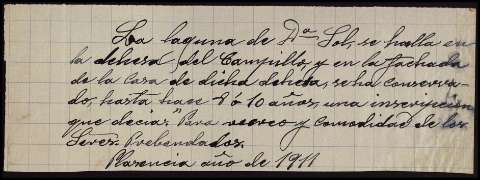 La laguna de Dª Sol, se halla en
la dehesa del Campillo, y en la fachada
de la casa de dicha dehesa, se ha conserva-
do, hasta hace 8 ó 10 años, una inscripción
que decia: "Para recreo y comodidad de los
Sres. Prebendados.
Plasencia año de 1911